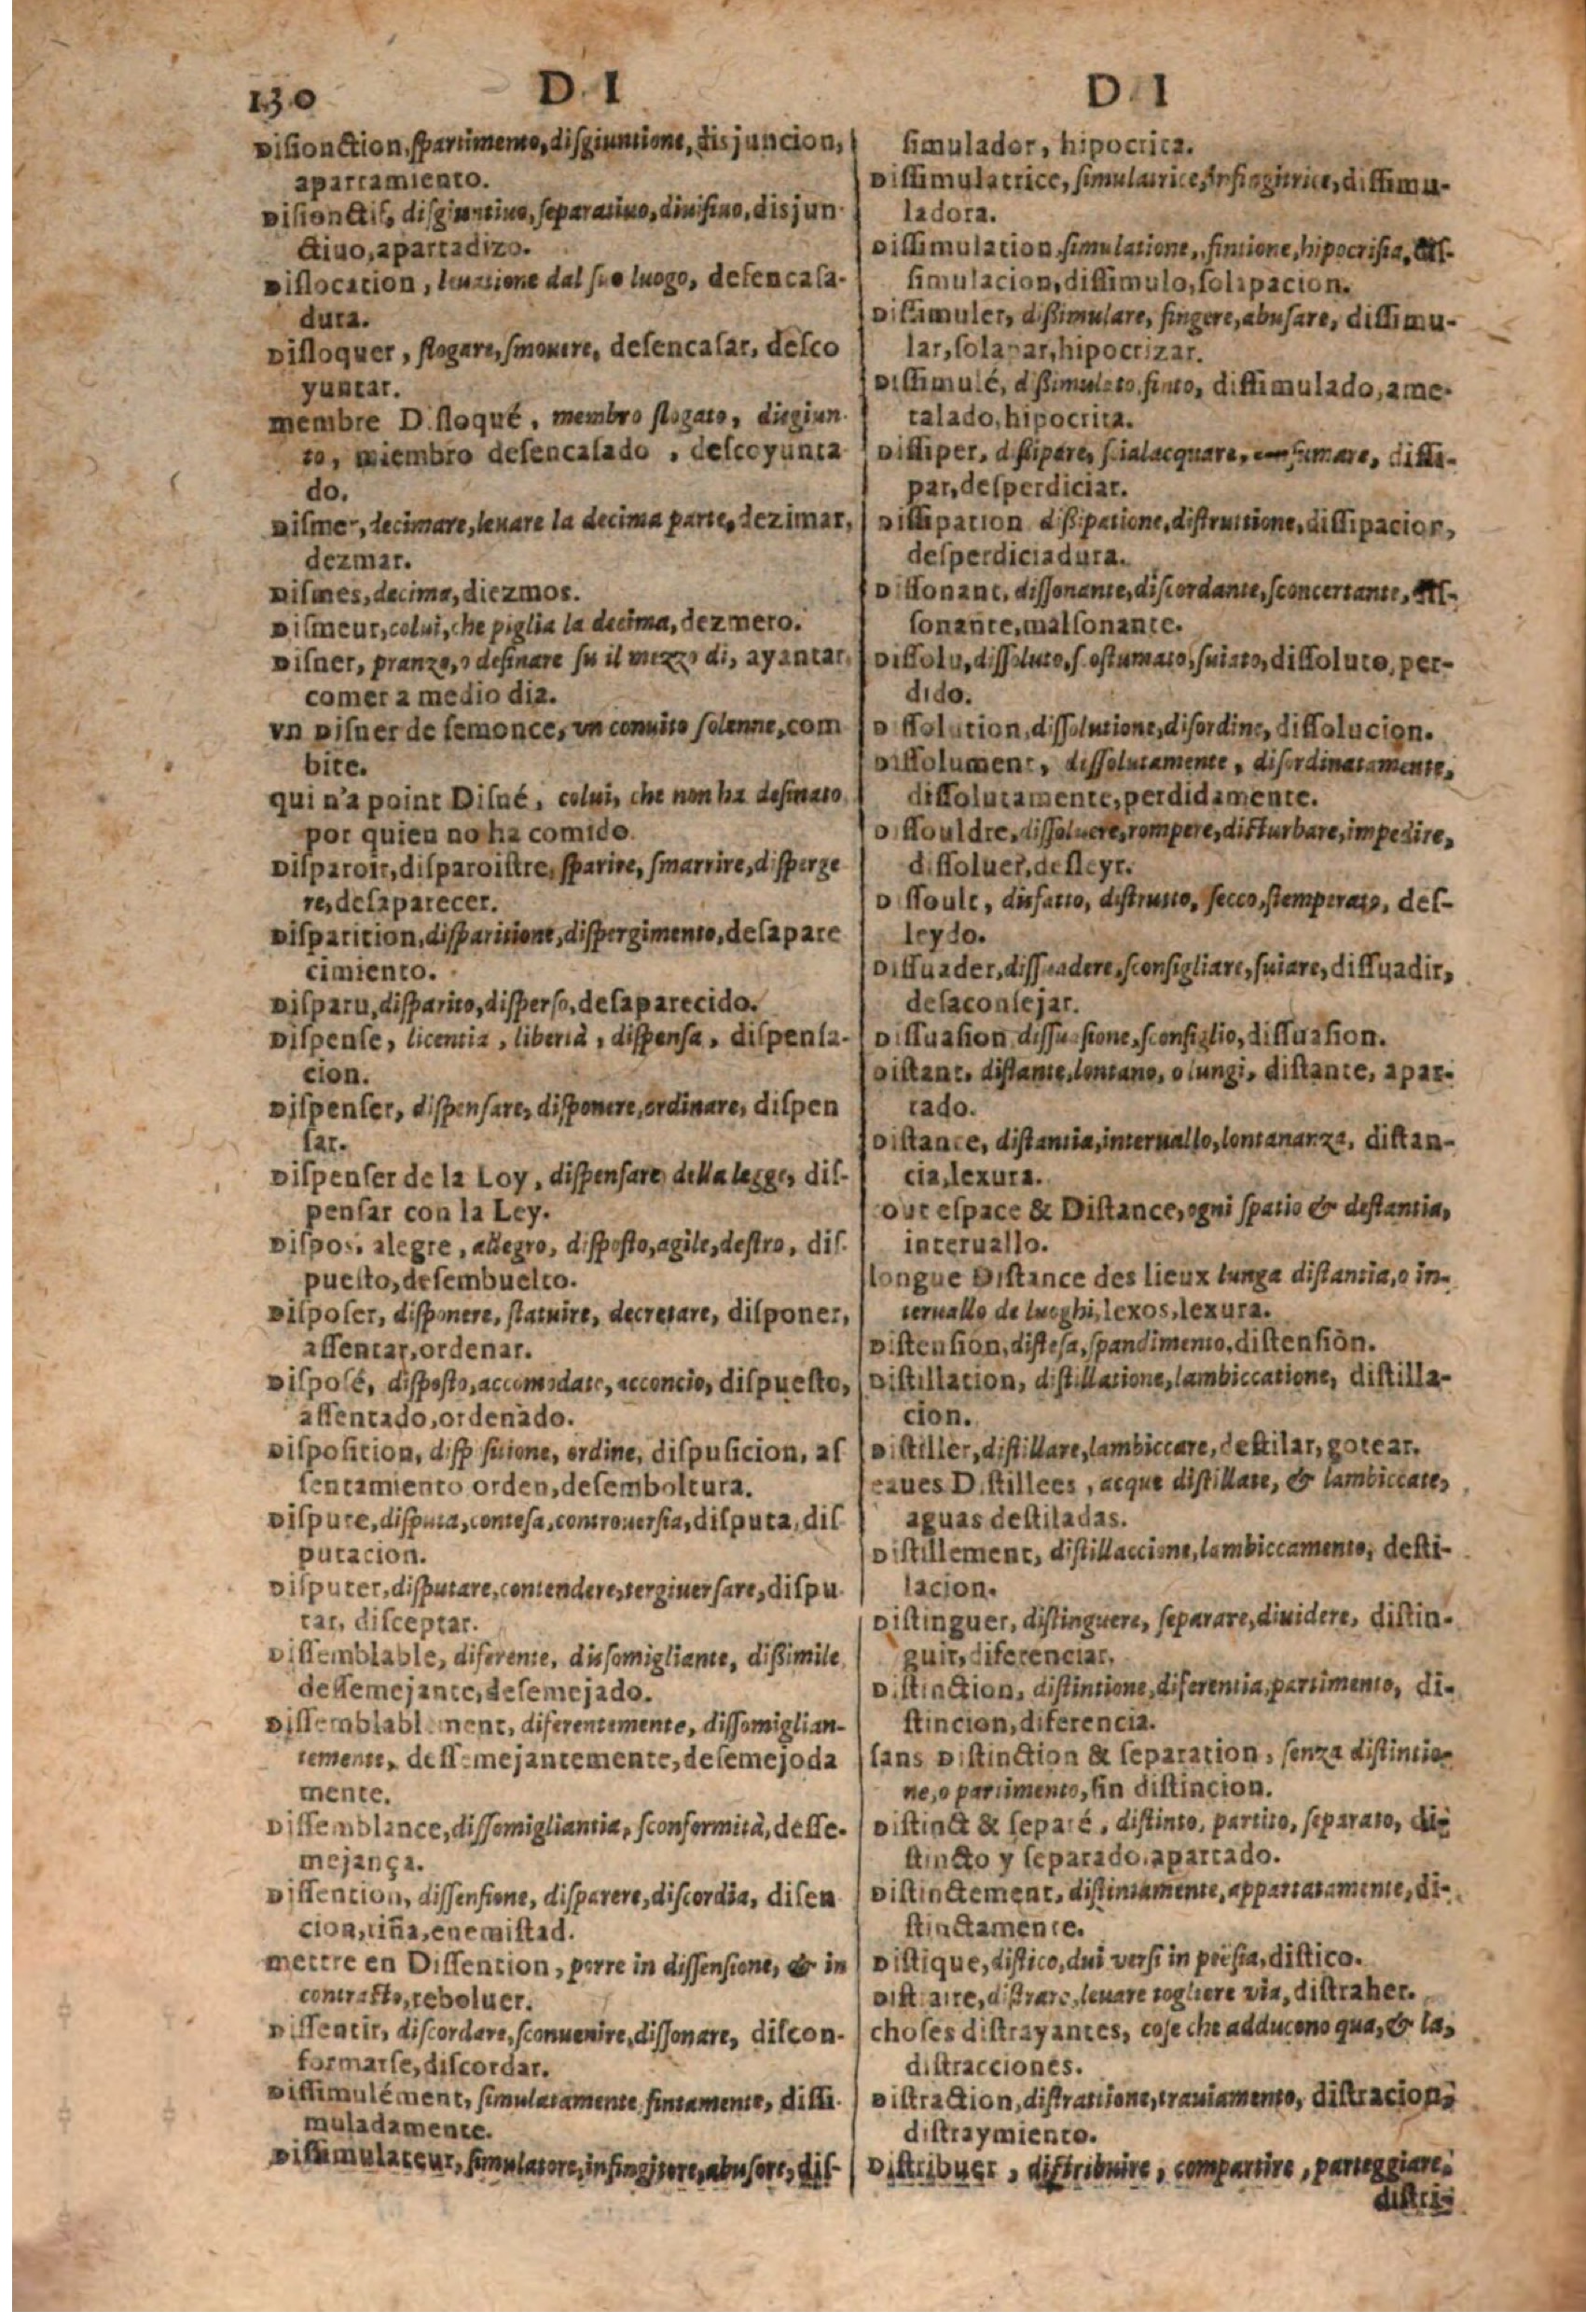 130
D I
Disionction, spartimento, disgiuntione, disjuncion,
apartamiento.
Disionctif, disgiuntiuo, separatiuo, diuisiuo, disjun-
ctiuo, apartadizo.
Dislocation, leuatione dal suo luogo, desencasa-
dura.
Disloquer, slogare, smouere, desencasar, desco
yuntar.
membre Disloqué, membro slogato, disgiun-
to, miembro desencasado, descoyunta
do.
Dismer, decimare, leuare la decima parte, dezimar,
dezmar.
Dismes, decima, diezmos.
Dismeur, colui, che piglia la decima, dezmero.
Disner, pranzo, o desinare su il mezzo di, ayantar,
comer a medio dia.
vn Disner de semonce, vn conuito solenne, com
bite.
qui n'a point Disné, colui, che non ha desinato
por quien no ha comido.
Disparoir, disparoistre, sparire, smarrire, disperge
re, desaparecer.
Disparition, disparitione, dispergimento, desapare
cimiento.
Disparu, disparito, disperso, desaparecido.
Dispense, licentia, libertà, dispensa, dispensa-
cion.
Dispenser, dispensare, disponere, ordinare, dispen
sar.
Dispenser de la Loy, dispensare della legge, dis-
pensar con la Ley.
Dispos, alegre, allegro, disposto, agile, destro, dis-
puesto, desembuelto.
Disposer, disponere, statuire, decretare, disponer,
assentar, ordenar.
Disposé, disposto, accomodato, acconcio, dispuesto,
assentado, ordenado.
Disposition, dispositione, ordine, dispusicion, as
sentamiento orden, desemboltura.
Dispute, disputa, contesa, controuersia, disputa, dis-
putacion.
Disputer, disputare, contendere, tergiuersare, dispu-
tar, disceptar.
Dissemblable, diferente, dissomigliante, dissimile
dessemejante, desemejado.
Dissemblablement, diferentemente, dissomiglian-
temente, dessemejantemente, desemejoda
mente.
Dissemblance, dissomigliantia, sconformità, desse-
mejança.
Dissention, dissensione, disparere, discordia, disen
cion, riña, enemistad.
mettre en Dissention, porre in dissensione, & in
contrasto, reboluer.
Dissentir, discordare, sconuenire, dissonare, discon-
formarse, discordar.
Dissimulément, simulatamente, fintamente, dissi-
muladamente.
Dissimulateur, simulatore, infingitore, abusore, dis-
D I
simulador, hipocrita.
Dissimulatrice, simulatrice, infingitrice, dissimu-
ladora.
Dissimulation, simulatione, fintione, hipocrisia, dis-
simulacion, dissimulo, solapacion.
Dissimuler, dissimulare, fingere, abusare, dissimu-
lar, solapar, hipocrizar.
Dissimulé, dissimulato, finto, dissimulado, ame-
talado, hipocrita.
Dissiper, dissipare, scialacquare, consumare, dissi-
par, desperdiciar.
Dissipation, dissipatione, distruttione, dissipacion,
desperdiciadura.
Dissonant, dissonante, discordante, sconcertante, dis-
sonante, malsonante.
Dissolu, dissoluto, scostumato, suiato, dissoluto, per-
dido.
Dissolution, dissolutione, disordine, dissolucion.
Dissolument, dissolutamente, disordinatamente,
dissolutamente, perdidamente.
Dissouldre, dissoluere, rompere, disturbare, impedire,
dissoluer, desleyr.
Dissoult, disfatto, distrutto, secco, stemperato, des-
leydo.
Dissuader, dissuadere, sconsigliare, suiare, dissuadir,
desaconsejar.
Dissuasion, dissuasione, sconsiglio, dissuasion.
Distant, distante, lontano, o lungi, distante, apar-
tado.
Distance, distantia, interuallo, lontananza, distan-
cia, lexura.
out espace & Distance, ogni spatio & destantia,
interuallo.
longue Distance des lieux lunga distantia, o in-
teruallo de luoghi, lexos, lexura.
Distension, distesa, spandimento, distension.
Distillation, distillatione, lambiccatione, distilla-
cion.
Distiller, distillare, lambiccare, destilar, gotear.
eaues Distillees, acque distillate, & lambiccate,
aguas destiladas.
Distillement, distillaccione, lambiccamento, desti-
lacion.
Distinguer, distinguere, separare, diuidere, distin-
guir, diferenciar.
Distinction, distintione, diferentia, partimento, di-
stincion, diferencia.
sans Distinction & separation, senza distintio-
ne, o partimento, sin distincion.
Distinct & separé, distinto, partito, separato, di-
stincto y separado, apartado.
Distinctement, distintamente, appartatamente, di-
stinctamente.
Distique, distico, dui versi in poesia, distico.
Distraire, distrare, leuare togliere via, distraher.
choses distrayantes, cose che adduceno qua, & la,
distracciones.
Distraction, distrattione, trauiamento, distracion,
distraymiento.
Distribuer, distribuire, compartire, parteggiare,
distri-